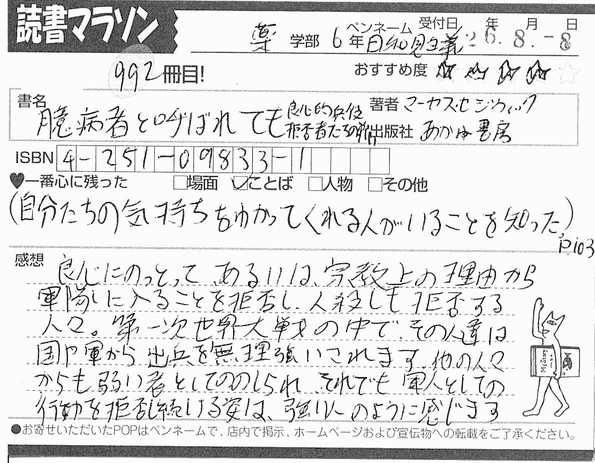 読書マラソン
薬 学部 6年 ペンネーム 日和見主義 受付日 26年 8月 -8日
992冊目!
おすすめ度 ☆☆☆☆☆
書名 臆病者と呼ばれても 良心的兵役拒否者たちの戦い 著者 マーカス・セジウィック
出版社 あかね書房
ISBN 4-251-09833-1
♥一番心に残った □場面 ☑ことば □人物 □その他
(自分たちの気持ちをわかってくれる人がいることを知った。)
P.103
感想 良心にのっとって あるいは、宗教上の理由から
軍隊に入ることを拒否し、人殺しを拒否する
人々。第一次世界大戦の中で、その人達は
国や軍から出兵を無理強いされます。他の人々
からも弱い者としてののしられ、それでも軍人としての
行動を拒否し続ける姿は、強い人のように感じます
●お寄せいただいたPOPはペンネームで、店内で掲示、ホームページおよび宣伝物への転載をご了承ください。